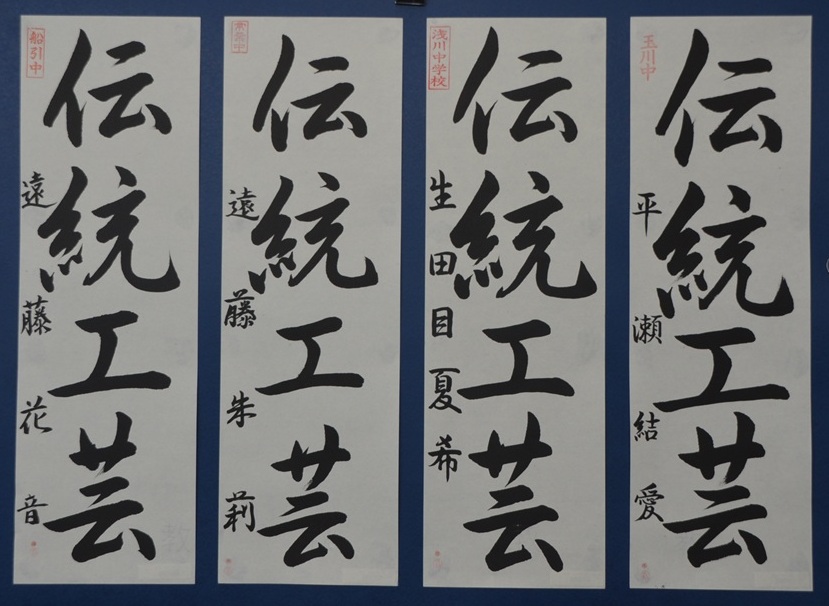 玉川中
伝統工芸
平瀬結愛
浅川中学校
伝統工芸
生田目夏希
伝統工芸
遠藤朱莉
船引中
伝統工芸
遠藤花音